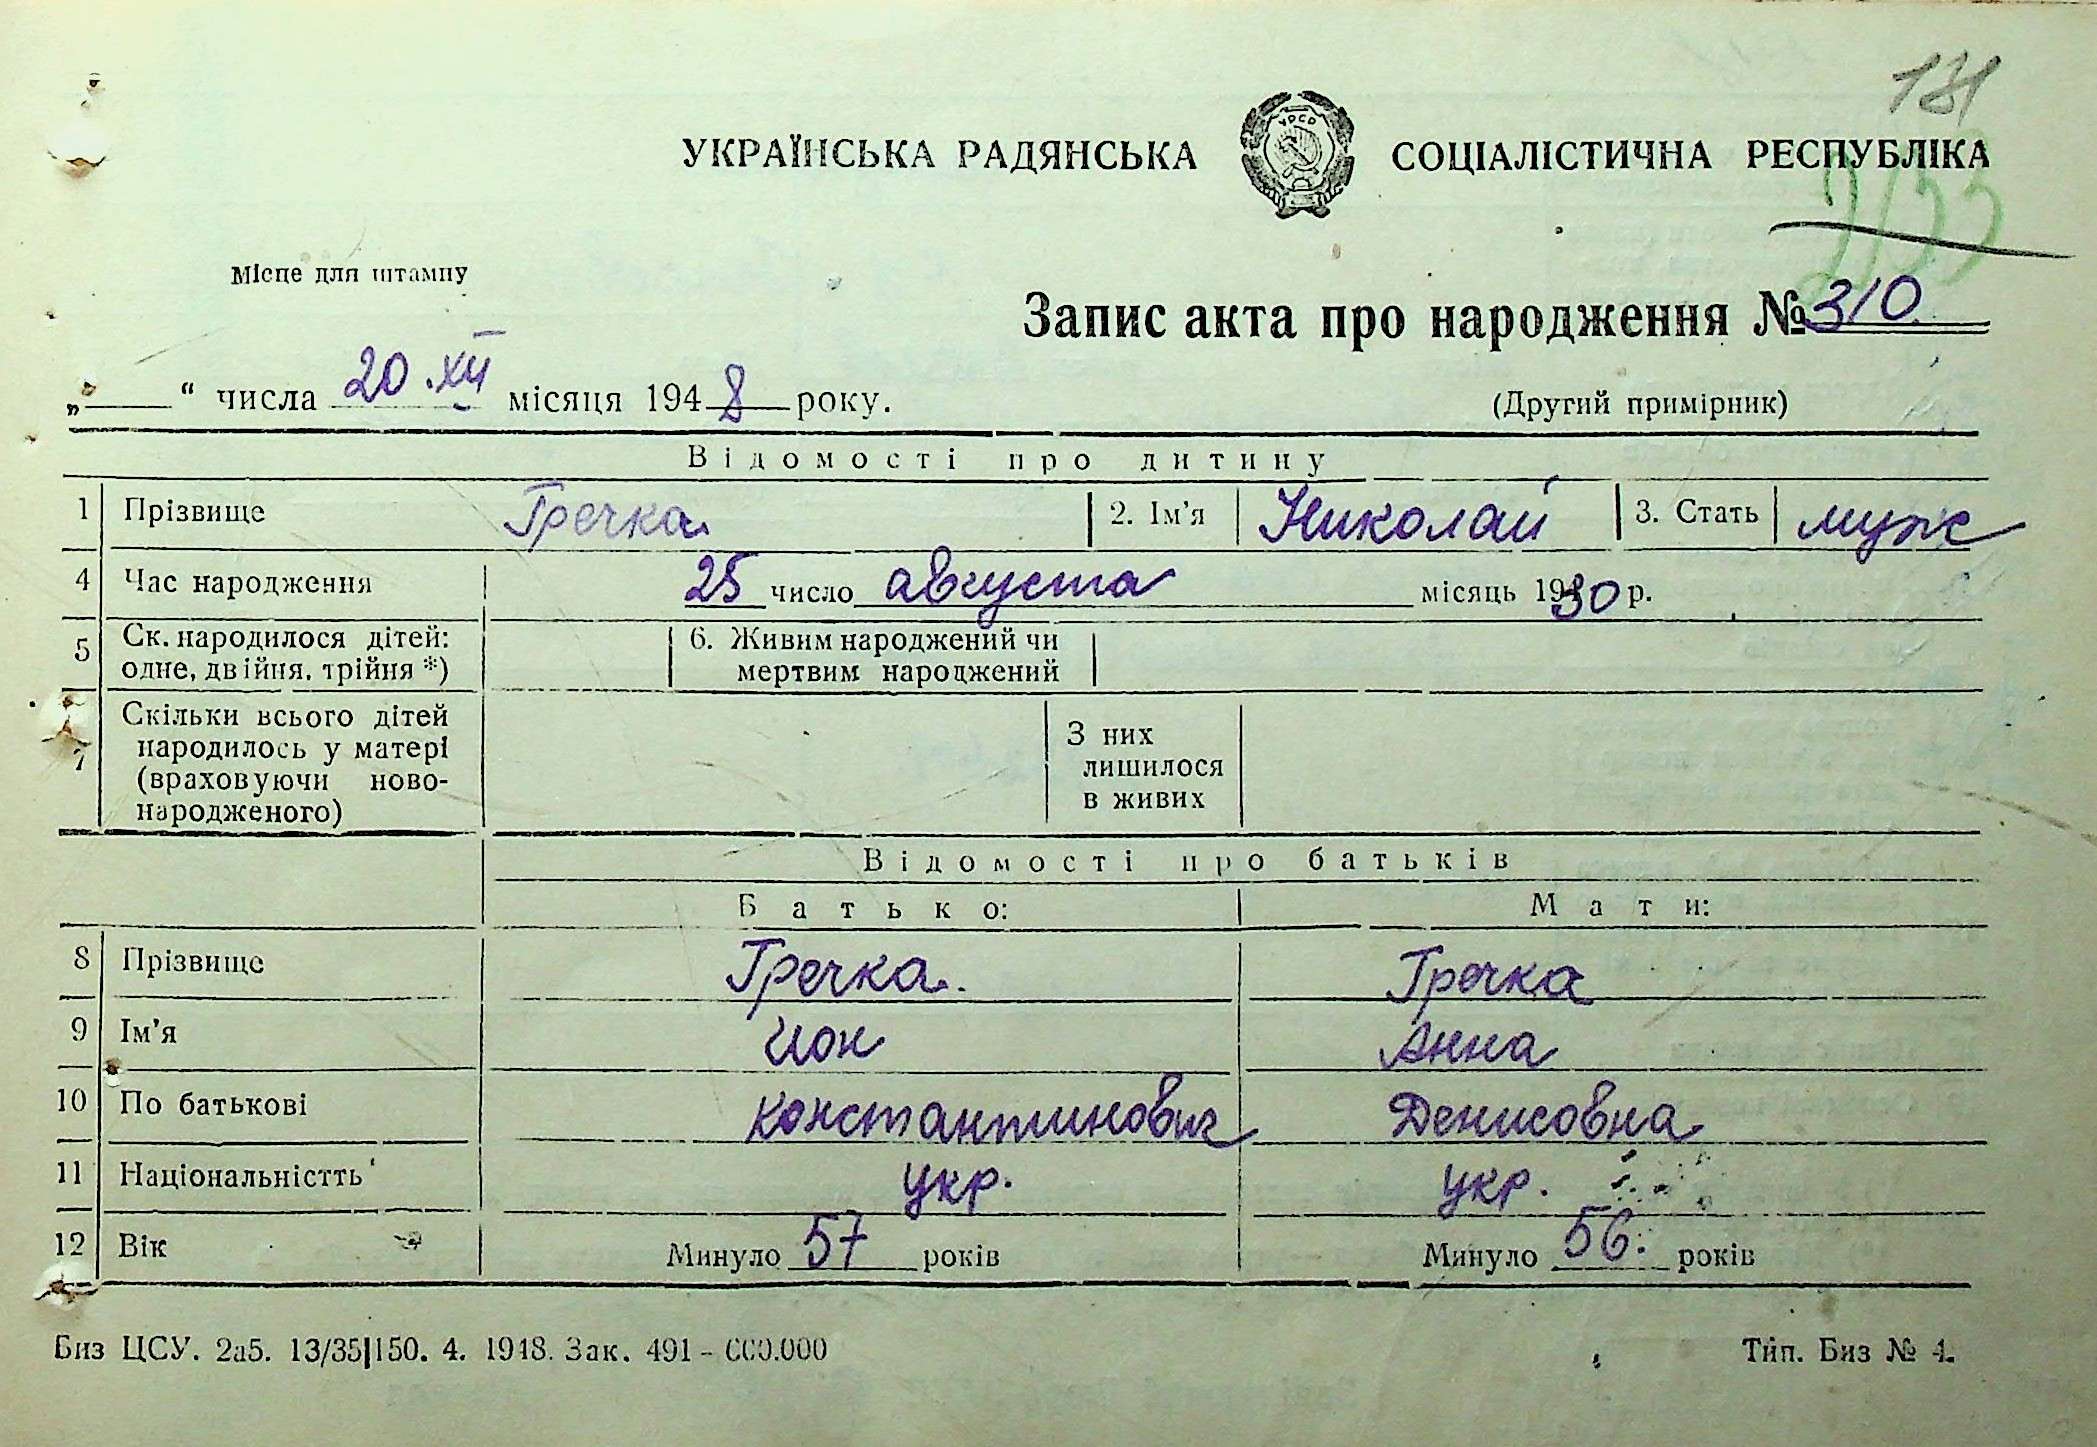 131
УКРАЇНСЬКА РАДЯНСЬКА СОЦІАЛІСТИЧНА РЕСПУБЛІКА
УРСР
2153
Місце для штампу
Запис акта про народження № 310
„ “ числа 20.XII місяця 1948 року.
(Другий примірник)
Відомості про дитину
1 Прізвище Гречка 2. Ім’я Николай 3. Стать муж
4 Час народження 25 число августа місяць 1930 р.
5 Ск. народилося дітей: одне, двійня, трійня *) 6. Живим народжений чи мертвим народжений
7 Скільки всього дітей народилось у матері (враховуючи ново-народженого) З них лишилося в живих
Відомості про батьків
Батько: Мати:
8 Прізвище Гречка. Гречка
9 Ім’я Ион Анна
10 По батькові Константинович Денисовна
11 Національністть укр. укр.
12 Вік Минуло 57 років Минуло 56. років
Биз ЦСУ. 2а5. 13/35|150. 4. 1948. Зак. 491 – 600.000 Тип. Биз № 4.